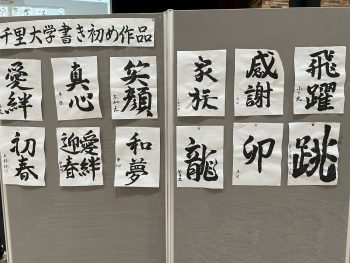 千里大学書き初め作品
愛絆
真心
笑顔
家族
感謝
飛躍
初春
迎春
愛絆
和夢
龍
卯
跳